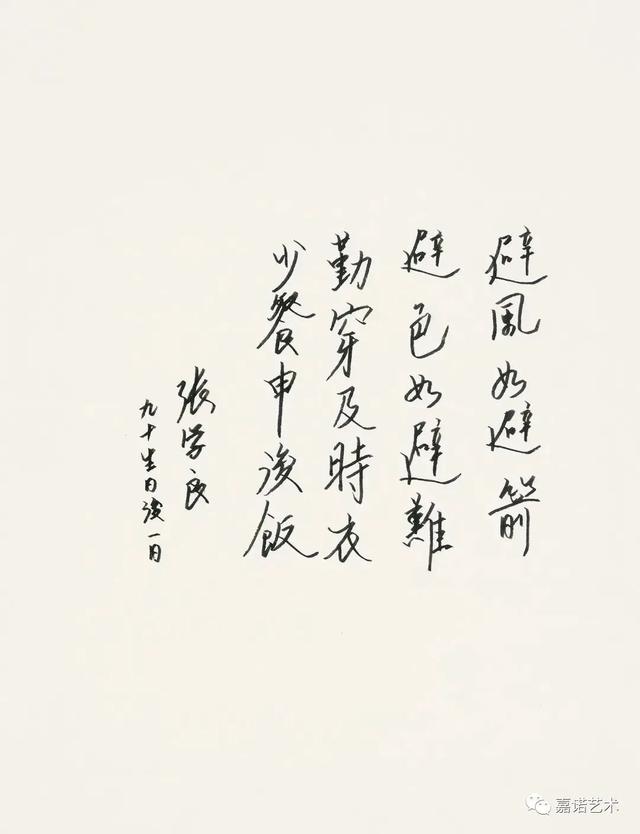 避風如避箭
避色如避難
勤穿及時衣
少餐申後飯
張学良
九十生日後一日
嘉诺艺术